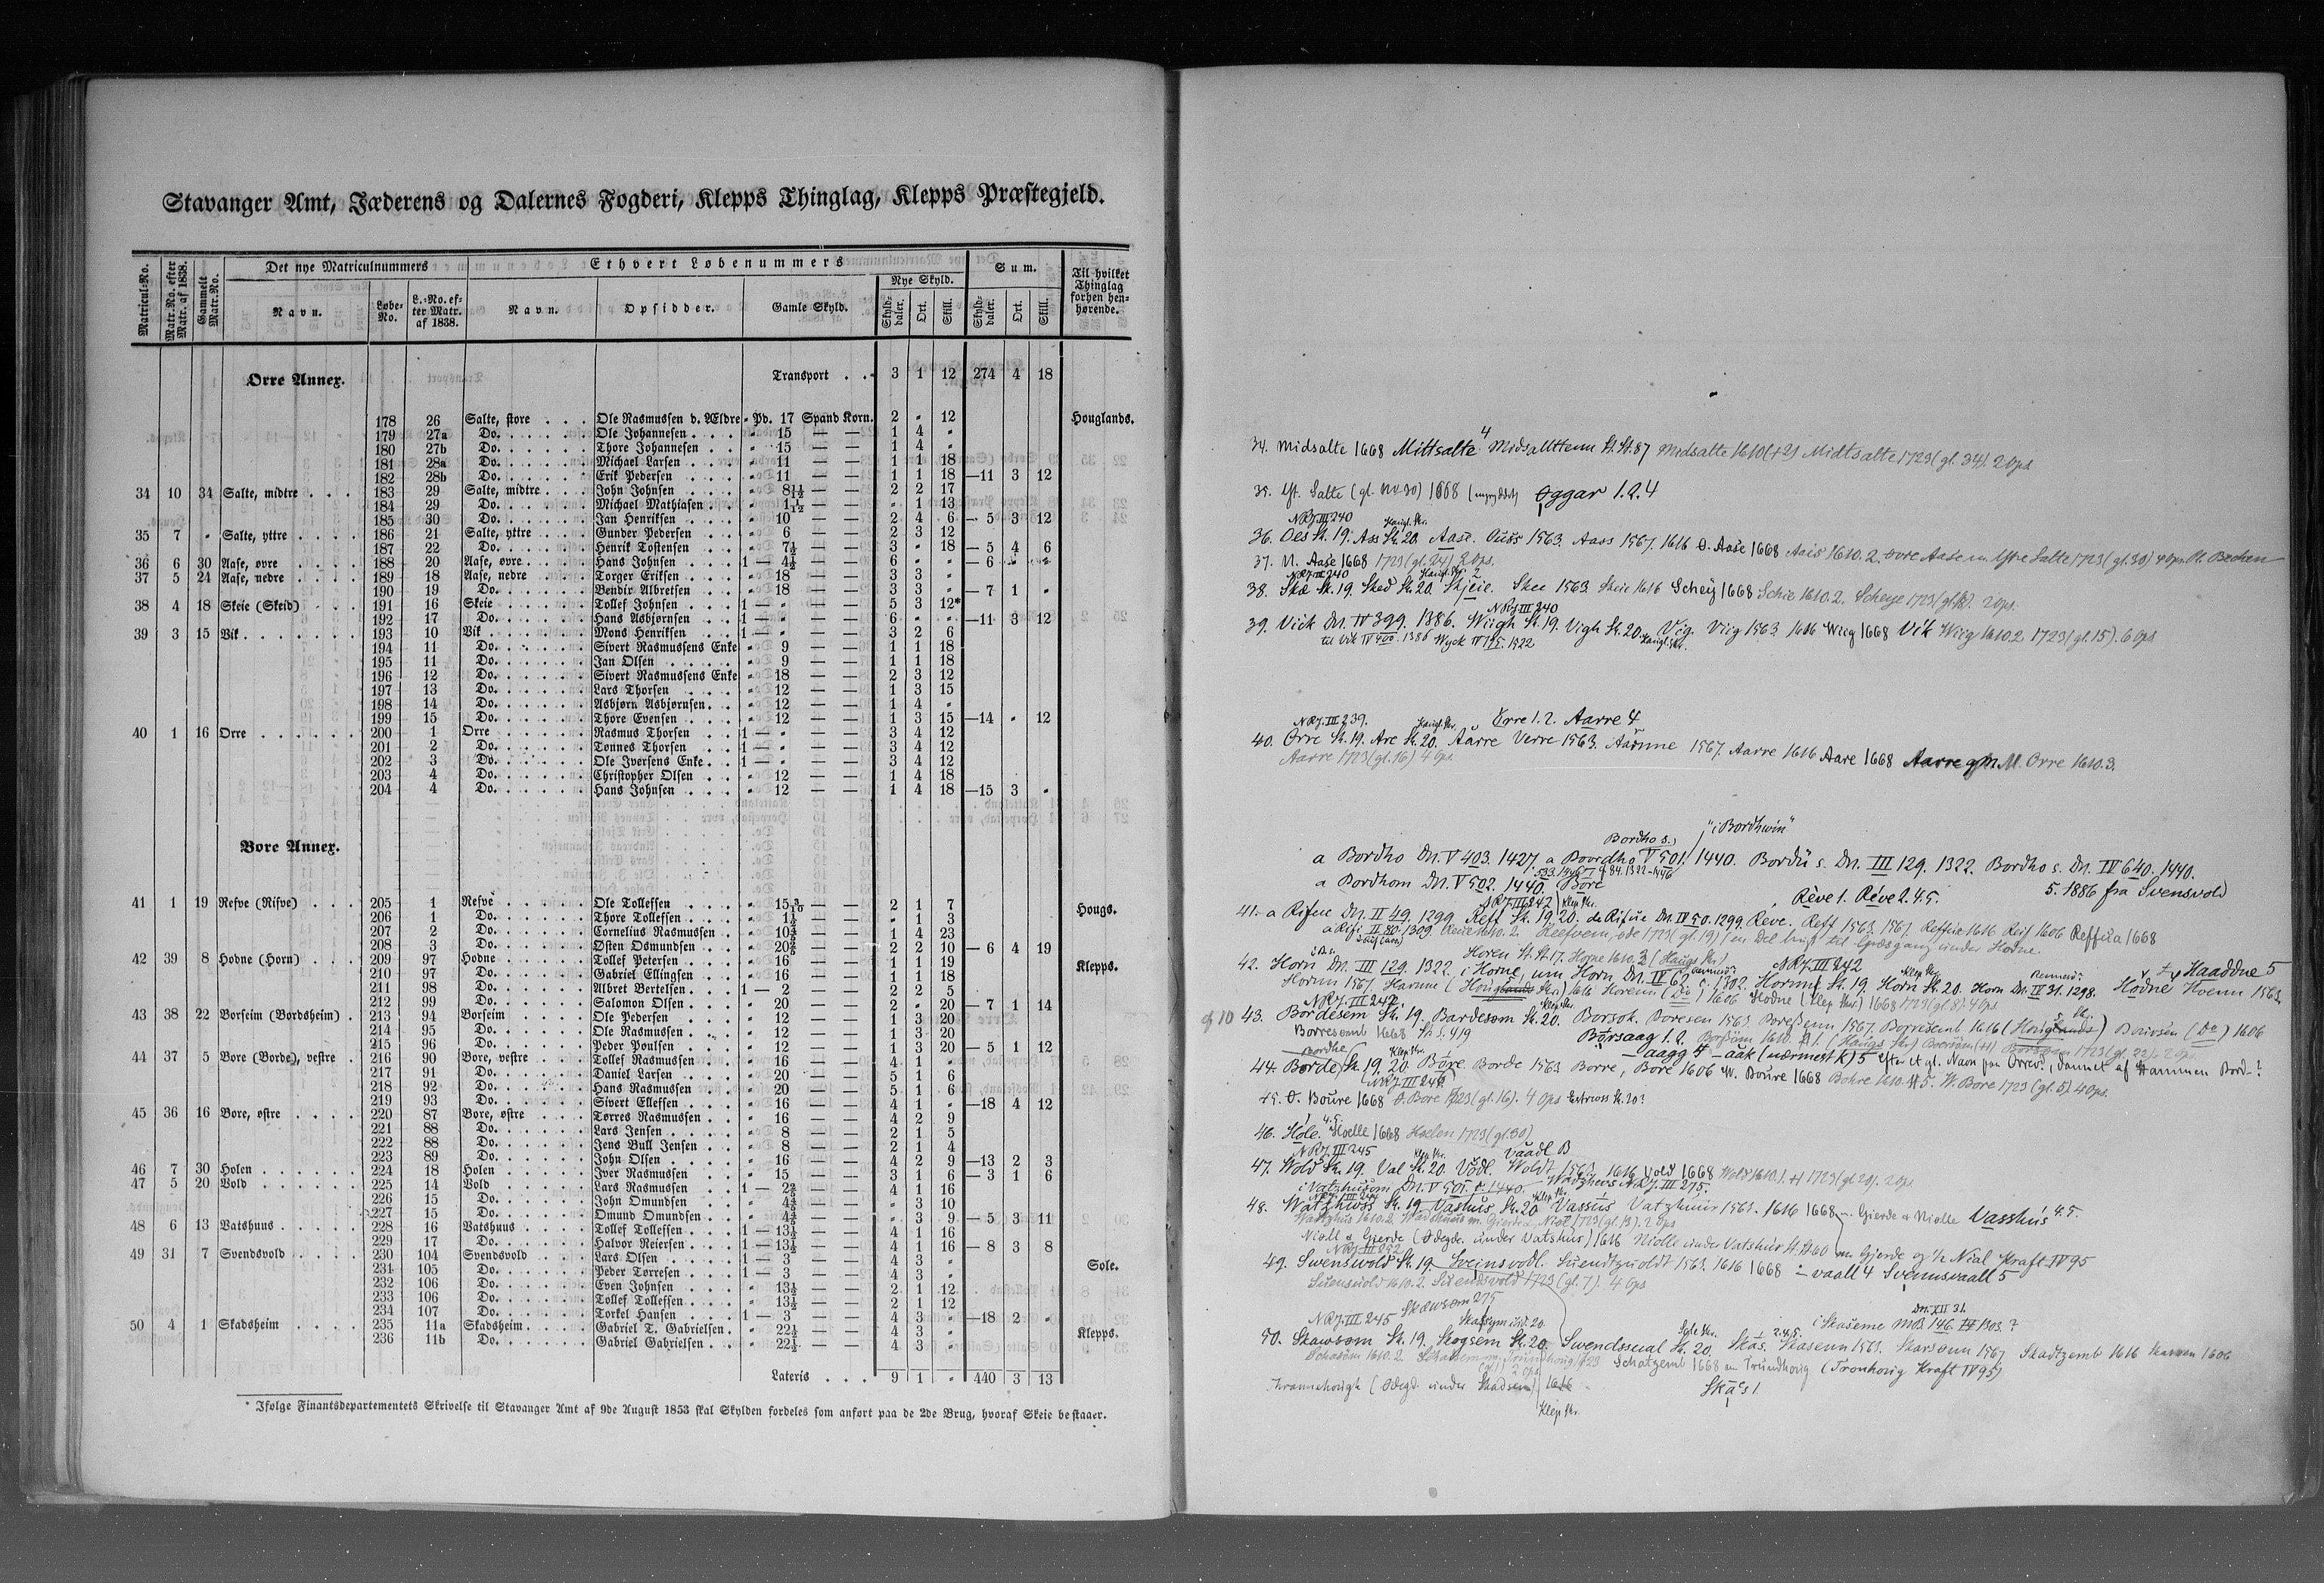 Stavanger Amt, Jæderens og Dalernes Fogderi, Klepps Thinglag, Klepps Præstegjeld.
Matricul-No. Matr.No. efter Matr. af 1838. Gammelt Matr.No. Det nye Matriculnummers Ethvert Løbenummers Sum. Til hvilket Thinglag forhen henhørende.
Navn. Løbe-No. L.-No. efter Matr. af 1838. Navn. Opsidder. Gamle Skyld. Nye Skyld. Skylddaler. Ort. Skill. Skylddaler. Ort. Skill.
Orre Annex. Transport . . - 3 1 12 274 4 18
178 26 Salte, store . . . Ole Rasmussen d. Ældre - Pd. 17 Spand Korn. 2 - 12 Houglands.
179 27a Do. Ole Johannesen . . . - 15 — — 1 4 -
180 27b Do. Thore Johannesen . . - 15 — — 1 4 -
181 28a Do. Michael Larsen . . . - 11 — — 1 1 18
182 28b Do. Erik Pedersen . . . - 11 — — 1 1 18 —11 3 12
34 10 34 Salte, midtre . . . 183 29 Salte, midtre . . . John Johnsen . . . - 8 11/12 — — 2 2 17
184 29 Do. Michael Mathiasen . . - 1 1/12 — — - 1 13
185 30 Do. Jan Henriksen . . . - 10 — — 2 4 6 — 5 3 12
35 7 - Salte, yttre . . . . 186 21 Salte, yttre . . . Gunder Pedersen . . - 6 — — 2 3 12
187 22 Do. Henrik Tostensen . . - 7½ — — 3 - 18 — 5 4 6
36 6 30 Aase, øvre . . . . 188 20 Aase, øvre . . . Hans Johnsen . . . 1 — 4½ — — 6 - - — 6 - -
37 5 24 Aase, nedre . . . . 189 18 Aase, nedre . . . Torger Eriksen . . . - 18 — — 3 3 -
190 19 Do. Bendix Albretsen . . - 18 — — 3 3 - — 7 1 -
38 4 18 Skeie (Skeid) . . . 191 16 Skeie . . . Tollef Johnsen . . . 1 — - — — 5 3 12*
192 17 Do. Hans Asbjørnsen . . 1 — - — — 6 - - —11 3 12
39 3 15 Vik . . . . . . . 193 10 Vik . . . Mons Henriksen . . 1 — - — — 3 2 6
194 11 Do. Sivert Rasmussens Enke - 9 — — 1 1 18
195 11 Do. Jan Olsen . . . . . - 9 — — 1 1 18
196 12 Do. Sivert Rasmussens Enke - 18 — — 2 3 12
197 13 Do. Lars Thorsen . . . - 12 — — 1 3 15
198 14 Do. Asbjørn Asbjørnsen . . - 12 — — 1 4 -
199 15 Do. Thore Evensen . . . - 12 — — 1 3 15 —14 - 12
40 1 16 Orre . . . . . . 200 1 Orre . . . Rasmus Thorsen . . 1 — - — — 3 4 12
201 2 Do. Tønnes Thorsen . . 1 — - — — 3 4 12
202 3 Do. Ole Iversens Enke . . 1 — - — — 3 4 12
203 4 Do. Christopher Olsen . . - 12 — — 1 4 18
204 4 Do. Hans Johnsen . . . - 12 — — 1 4 18 —15 3 -
Bore Annex.
41 1 19 Refve (Rifve) . . . 205 1 Refve . . . Ole Tollefsen . . . - 15 3/10 — — 2 1 7 Hougs.
206 1 Do. Thore Tollefsen . . . - 1½ — — - 1 3
207 2 Do. Cornelius Rasmussen . - 10⅘ — — 1 4 23
208 3 Do. Østen Osmundsen . . - 20⅖ — — 2 2 10 — 6 4 19
42 39 8 Hodne (Horn) . . . 209 97 Hodne . . . Tollef Petersen . . . - 16 — — 1 1 19 Klepps.
210 97 Do. Gabriel Ellingsen . . - 16 — — 1 1 18
211 98 Do. Albret Bertelsen . . . 1 — 2 — — 2 2 5
212 99 Do. Salomon Olsen . . . - 20 — — 2 - 20 — 7 1 14
43 38 22 Borseim (Bordsheim) . 213 94 Borseim . . . Ole Pedersen . . . - 12 — — 1 3 20
214 95 Do. Ole Rasmussen . . . - 12 — — 1 3 20
215 96 Do. Peder Poulsen . . . - 12 — — 1 3 20 — 5 1 12
44 37 5 Bore (Borde), vestre . 216 90 Bore, vestre . . . Tollef Rasmussen . . - 16 — — 4 1 -
217 91 Do. Daniel Larsen . . . - 20 — — 5 1 6
218 92 Do. Hans Rasmussen . . - 20 — — 5 1 6
219 93 Do. Sivert Ellefsen . . . - 16 — — 4 1 - —18 4 12
45 36 16 Bore, østre . . . . 220 87 Bore, østre . . . Tørres Rasmussen . . - 16 — — 4 2 9
221 88 Do. Lars Jensen . . . . - 8 — — 2 1 5
222 88 Do. Jens Bull Jensen . . - 8 — — 2 1 4
223 89 Do. John Olsen . . . . - 16 — — 4 2 9 —13 2 3
46 7 30 Holen . . . . . . 224 18 Holen . . . Iver Rasmussen . . - 15 — — 3 1 6 — 3 1 6
47 5 20 Vold . . . . . . 225 14 Vold . . . Lars Rasmussen . . 1 — 2⅖ — — 4 1 16
226 15 Do. John Omundsen . . - 4⅘ — — - 3 10
227 15 Do. Omund Omundsen . . - 4⅘ — — - 3 9 — 5 3 11
48 6 13 Vatshuus . . . . . 228 16 Vatshuus . . . Tollef Tollefsen . . . 1 — 13½ — — 4 1 16
229 17 Do. Halvor Reiersen . . . 1 — 13½ — — 4 1 16 — 8 3 8
49 31 7 Svendsvold . . . . 230 104 Svendsvold . . . Lars Olsen . . . . 1 — 3 — — 4 3 - Sole.
231 105 Do. Peder Torresen . . . 1 — 3 — — 4 3 -
232 106 Do. Even Johnsen . . . - 13½ — — 2 1 12
233 106 Do. Tollef Tollefsen . . . - 13½ — — 2 1 12
234 107 Do. Torkel Hansen . . . 1 — 3 — — 4 3 - —18 2 -
50 4 1 Skadsheim . . . . 235 11a Skadsheim . . . Gabriel T. Gabrielsen . - 22½ — — 4 3 - Klepps.
236 11b Do. Gabriel Gabrielsen . . - 22½ — — 4 3 -
Lateris . . . 9 1 - 440 3 13
* Ifølge Finantsdepartementets Skrivelse til Stavanger Amt af 9de August 1853 skal Skylden fordeles som anført paa de 2de Brug, hvoraf Skeie bestaaer.
34. Midsalte 1668 Mittsalte 4 Midsallttenn St. St. 87 Midsalte 1610 (+2) Midtsalte 1723 (gl. 34). 2 ops
35. Yt. Salte (gl. No 30) 1668 Eggar 1.2.4
NRJ. III 240
36. Oes Sk. 19. Ass Sk. 20. Aase. Auss 1563. Aass 1567. 1616 Ø. Aase 1668 Aais 1610. 2. øvre Aase m. Yttre Salte 1723 (gl. 30) 4 ops.
37. N. Aase 1668 1723 (gl. 24) 2 ops.
NRJ. III 240
38. Skæ Sk. 19. Sked Sk. 20. Skjeie. Skee 1563. Skeie 1616 Scheij 1668 Schie 1610. 2. Scheye 1723 (gl. 18). 2 ops.
NRJ. III 240
39. Viik Dn. IV 399. 1386. Wiigh Sk. 19. Vigh Sk. 20. Vig. Viig 1563 1616 Wiig 1668 Vik Wiig 1610. 2 1723 (gl. 15). 6 ops
til Vik IV 400. 1386 Wyck
NRJ. III 239. Orre 1. 2. Aarre 4
40. Orre Sk. 19. Are Sk. 20. Aarre Verre 1563. 1567. Aarre 1616 Aare 1668 Orre 1610. 3.
Aarre 1723 (gl. 16) 4 ops.
"i Bordhwin"
Bordho s.
a Bordho Dn. V 403. 1427. a Boordho V 501. 1440. Bordü s. Dn. III 129. 1322. Bordho s. Dn. IV 640. 1440.
a Bordhom Dn. V 502. 1440. Bore
Rêve 1. Rêve 2. 4. 5. 5. 1886 fra Svensvold
NRJ. III 242 Klep Skr.
41. a Rifue Dn. II 49. 1299. Reff Sk. 19. 20. de Rifue Dn. IV 50. 1299. Reve. Reff 1563. 1567. Reffue 1616 Reif 1606 Reffua 1668
a Rifi II 80. 1309. Reue 1610. 2. Reefvem, øde 1723 (gl. 19) en Del brugt til Græsgang under Hodne
Horen St. St. 17. Horne 1610. 2 (Haugs Skr) NRJ. III 242 Haaddne 5
42. Horn Dn. III 129. 1322. i Horne, um Horn Dn. IV 62. c. 1302. Sk. 19. Horn Sk. 20. Horn Dn. IV 31. 1298. Hodne Hoenn 1563
1567 1606 Hodne (Klep Skr.) 1668 1723 (gl. 8) 4 ops
NRJ. III 242.
43. Bordesem Sk. 19. Bardesom Sk. 20. Borsok. Boresen 1563. 1567. Borresemb 1616 1606
Borresemb 1668 Børsaag 1. 2.
Bordhe -aagg 4 -aak (nærmest k) 5 efter et gl. Navn paa Orrev., dannet af Stammen Bord-?
44. Borde Sk. 19. 20. Bore. Borde 1563 Borre, Bore 1606 W. Boure 1668 Bohre 1610. W. Bore 1723 (gl. 5). 4 ops.
NRJ. III 242
45. Ø. Boure 1668 Ø. Bore 1723 (gl. 16). 4 ops
46. Hole. 4. 5. Hoelle 1668 Hoelen 1723 (gl. 30)
NRJ. III 245 Vaadl B
47. Wold Sk. 19. Val Sk. 20. Vodl. Woldt 1563. 1616 Vold 1668 Wold 1610. 1. 1723 (gl. 20). 2 ops
i Vatzhusom Dn. V 501. 1440. NRJ. III 275.
48. Sk. 19 Vashus Sk. 20 Vasshus Vatzhuus 1567. 1616 1668 m. Gierde o Niølle Vasshús 4. 5.
Gierde (Ødegde. under Vatshus) 1616 Niølle under Vatshus St. St. 60 m Gjerde og ½ Niøl Kraft IV 95
NRJ. III 252
49. Swenswold Sk. 19. Sveinsvodl. Suendtzuoldt 1563. 1616 1668 - vaall 4 Svennsvaall 5
Suensuold 1610. 2. Suendsvold 1723 (gl. 7). 4 ops
NRJ. III 245 Skawsom 275 Dn. XII 31.
i Skaseme MB. 146. 1303.?
50. Skawsom Sk. 19. Skogsem Sk. 20. Swendssual Sk. 20. Skas. Skasenn 1563. 1567 Skadtzemb 1616 1606
Schatzemb 1668 m Trundhorig (Tronhorig Kraft IV 95)
Thrannehougk (Ødegd. under Skadsem) 1616 Skas 1.
Klep Skr.